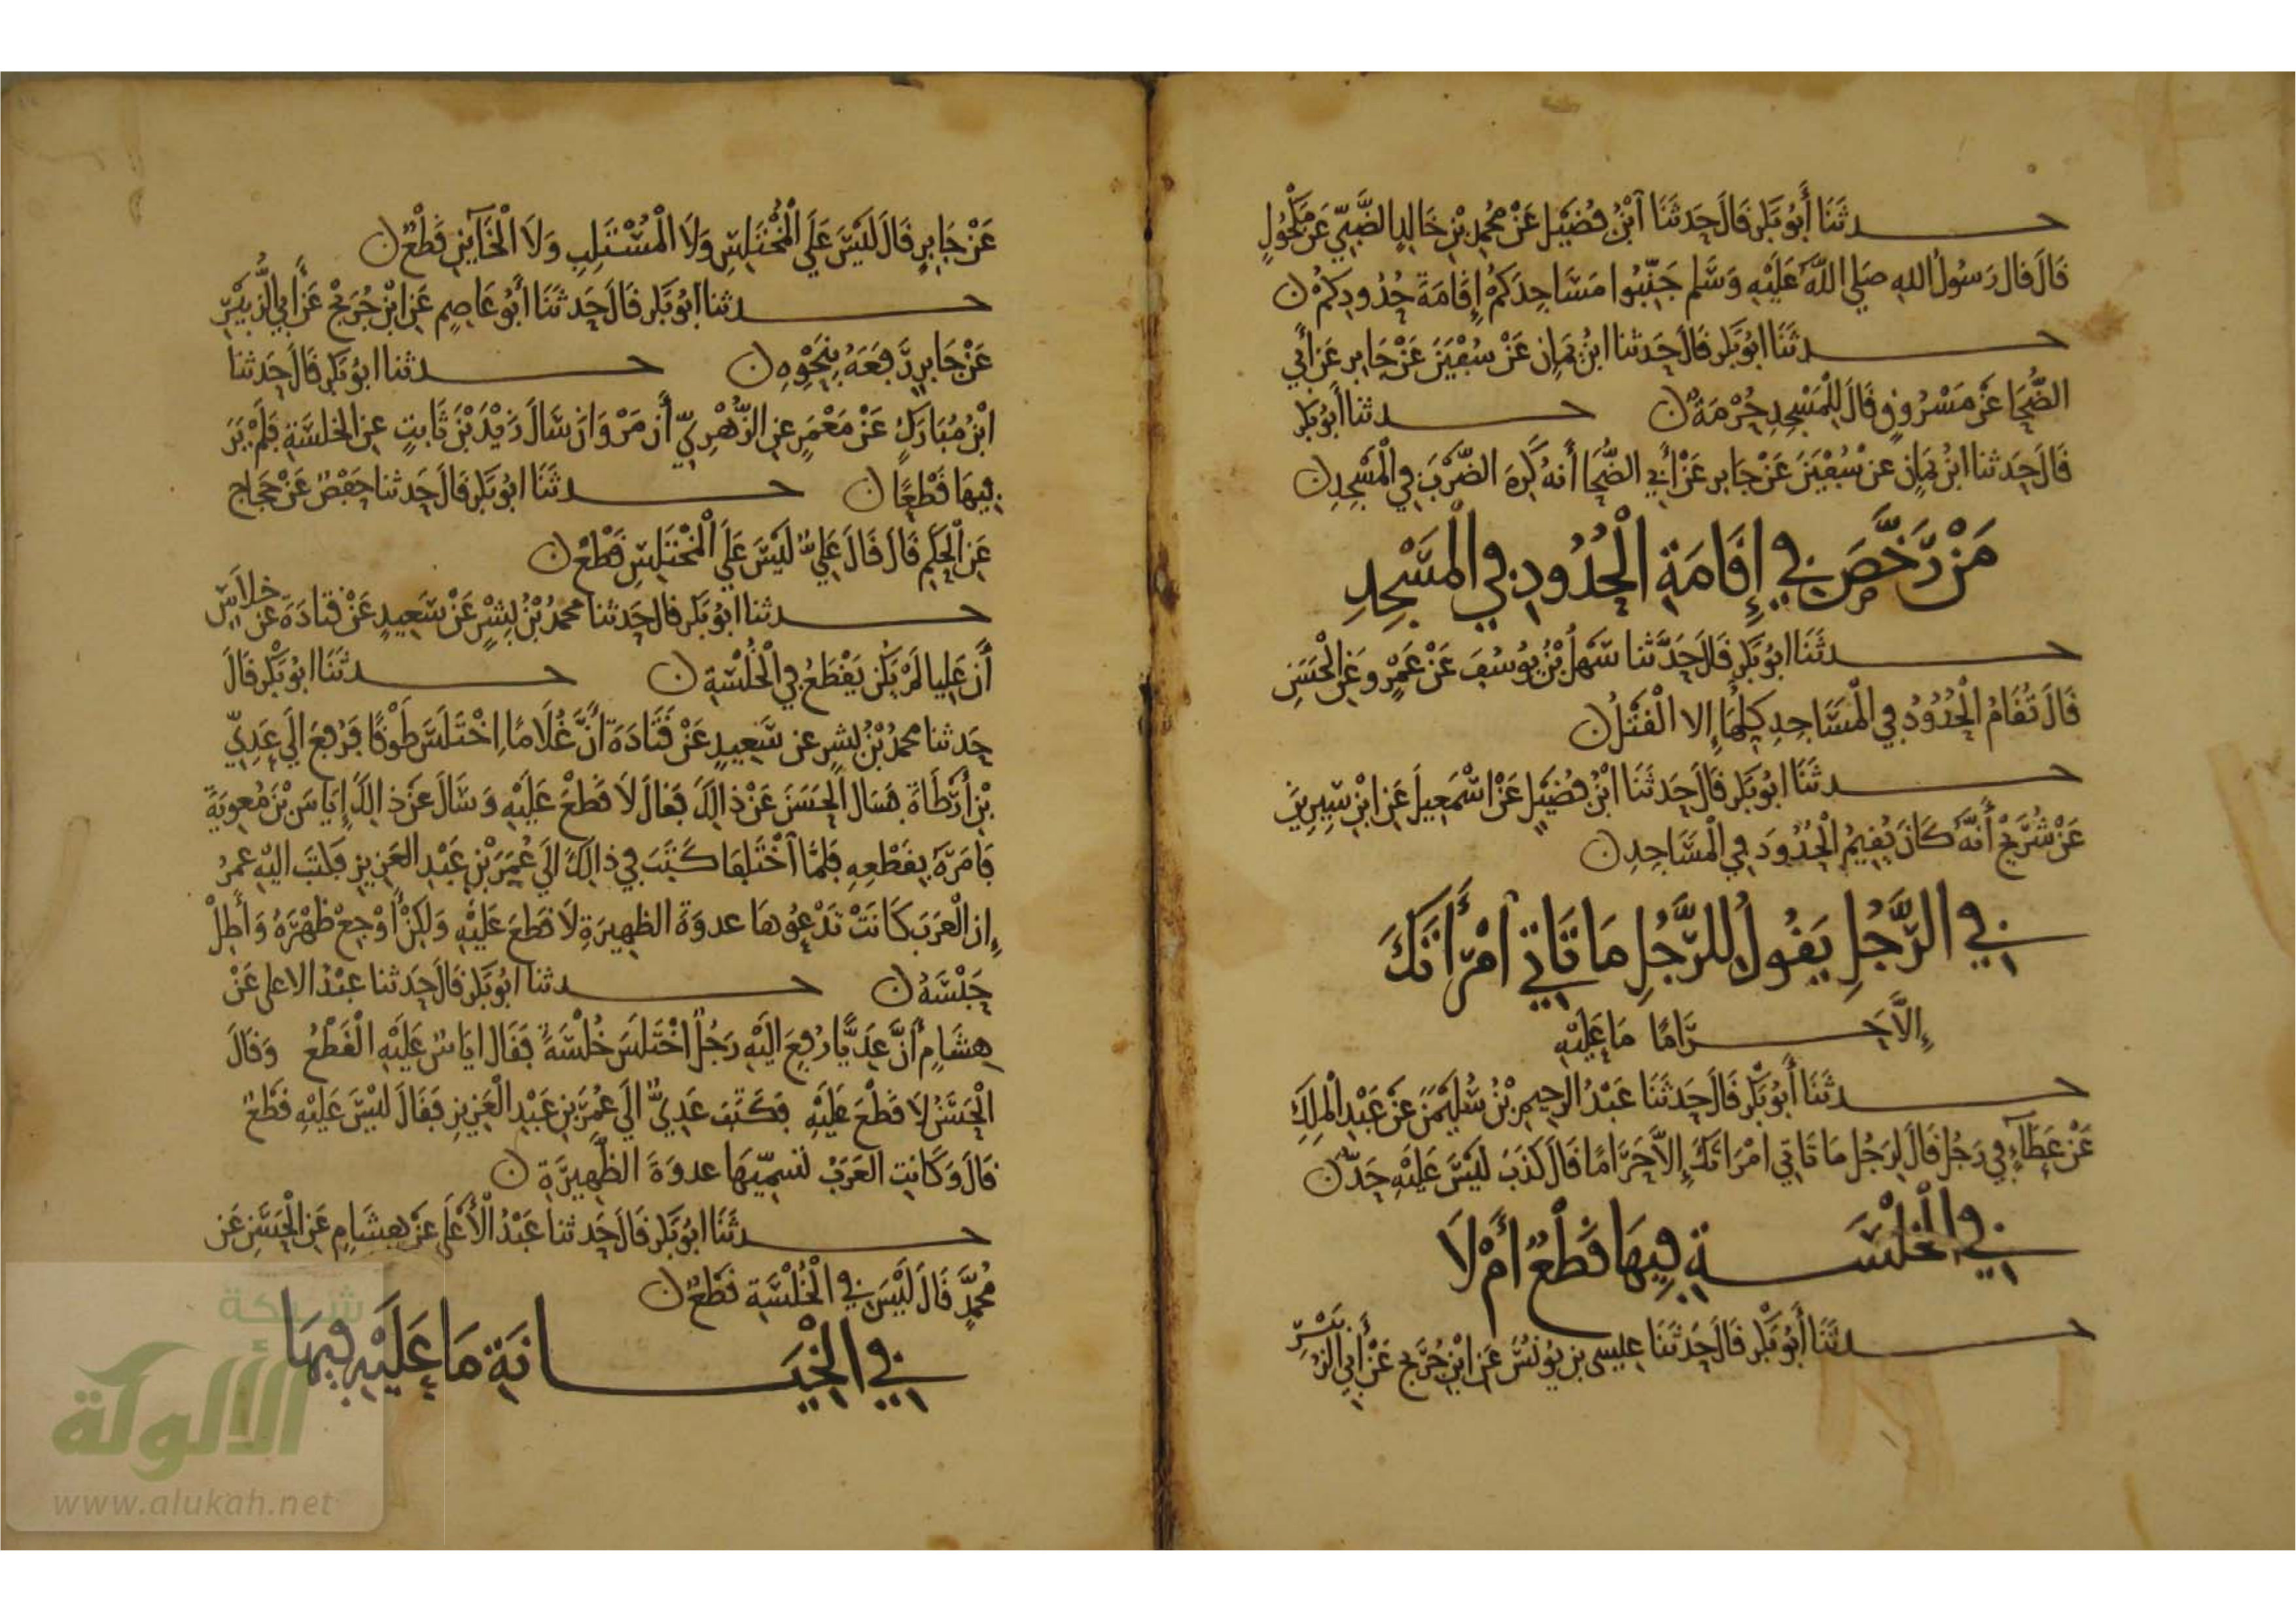 حدثَنَا أَبُو بَكر قَالَ حَدثَنَا ابْنُ فُضَيْل عَنْ مُحمدِ بْنِ خَالِدٍ الضَّبِيّ عَن مَكْحُولٍ
قَالَ قال رَسُولُ اللهِ صَلى اللهُ عَلَيْهِ وَسَلم جَنِّبُوا مَسَاجِدَكمْ إِقَامَةَ حُدُودِكمْ ن
حدثَنَا ابُو بَكر قَالَ حَدثنا ابنُ يَمَانٍ عَنْ سُفْيَنَ عَنْ جَابر عَن أَبي
الضُّحَا عَنْ مَسْرُوقٍ قَالَ لِلْمَسْجِدِ حُرْمَةٌ ن حدثنا أَبُو بَكر
قَالَ حَدثنا ابنُ يَمَانٍ عن سُفْيَنَ عَنْ جَابر عَنْ أَبي الضُّحَا أَنهُ كَرِهَ الضَّرْبَ في الْمَسْجِدِ ن
مَنْ رَّخَّصَ في إِقَامَةِ الْحُدُودِ في الْمَسْجِدِ
حدثَنَا ابُو بَكرٍ قَالَ حَدَّثنا سَهْلُ بْنُ يُوسُفَ عَنْ عَمْرٍو عَنِ الْحَسَنِ
قَالَ تُقَامُ الْحُدُودُ في الْمَسَاجِدِ كلِّهَا إِلا الْقَتْلُ ن
حدثَنَا ابُو بَكر قَالَ حَدثَنَا ابْنُ فُضَيْلٍ عَنْ اسْمَعِيلَ عَنِ ابْنِ سِيرِينَ
عَنْ شُرَيْحٍ أَنَّهُ كَانَ يُقِيمُ الْحُدُودَ في الْمَسَاجِدِ ن
في الرَّجُلِ يَقُولُ لِلرَّجُلِ مَا تَاتي امْرَأَتَكَ
إِلاَّ حَرَامًا مَا عَلَيْهِ
حدثَنَا أَبُو بَكْرٍ قَالَ حَدثَنَا عَبْدُ الرحِيمِ بْنُ سُلَيْمَنَ عَنْ عَبْدِ الْمَلِكِ
عَنْ عَطَآءٍ في رَجُلٍ قَالَ لِرَجُلٍ مَا تَاتي امْرَاتَكَ إِلاَّ حَرَامًا قَالَ كَذَبَ لَيْسَ عَلَيْهِ حَدٌّ ن
في الْخلْسَةِ فِيهَا قَطْعٌ أَمْ لَا
حدثَنَا أَبُو بَكْر قَالَ حَدثَنَا عِيسى بن يُونُسَ عَنِ ابْنِ جُرَيْجٍ عَنْ أَبي الزُّبَيْرِ
عَنْ جَابِرٍ قَالَ لَيْسَ عَلَى الْمُخْتَلِسِ وَلَا الْمُسْتَلِبِ وَلَا الْخَآئِنِ قَطْعٌ ن
حدثنا ابُو بَكر قَالَ حَدثَنَا أَبُو عَاصِمٍ عَنِ ابْنِ جُرَيْجٍ عَنْ أَبي الزُّبَيْرِ
عَنْ جَابِرٍ رَّفَعَهُ بِنَحْوِهِ ن حدثنا ابُو بَكر قَالَ حَدثنا
ابْنُ مُبَارَكٍ عَنْ مَعْمَرٍ عنِ الزُّهْرِيّ أَن مَرْوَانَ سَالَ زَيْدَ بْنَ ثَابِتٍ عنِ الخلسَةِ فَلَمْ يَرَ
فِيهَا قَطْعًا ن حدثَنَا ابُو بَكر قَالَ حَدثنا حَفْصٌ عَنْ حَجَاجٍ
عَنِ الْحَكَمِ قَالَ قَالَ عَلِيٌّ لَيْسَ عَلَى الْمُخْتَلِسِ قَطْعٌ ن
حدثنا ابُو بَكر قال حَدثنا محمدُ بْنُ بِشْرٍ عَنْ سَعِيدٍ عَنْ قتادَةَ عن خلاسٍ
أَن عَلِيا لَمْ يَكُن يَقْطَعُ في الْخُلْسَةِ ن حدثَنَا ابُو بَكْر قَالَ
حَدثنا محمدُ بْنُ بشرٍ عن سَعِيدٍ عَنْ قَتَادَةَ أَنَّ غُلَامًا اخْتَلَسَ طَوْقًا فَرُفِعَ الَى عَدِيّ
بْنِ أَرْطَاةَ فسَالَ الْحَسَنَ عَنْ ذَالِكَ فَقالَ لَا قَطْعَ عَلَيْهِ وَسَالَ عَن ذالِكَ إِيَاسَ بْنَ مُعوِيَةَ
فَامَرَهُ بِقَطْعِهِ فَلمَّا آخْتَلِفَا كَتَبَ في ذالِكَ الَى عُمَرَ بْنِ عَبْدِ العَزِيزِ فَكتَبَ اليْهِ عمَرُ
إِن الْعَرَبَ كَانَتْ تَدْعُوهَا عدوَةَ الظهِيرَةِ لَا قَطعَ عَلَيْهِ وَلَكِنْ أَوْجِعْ ظَهْرَهُ وَأَطِلْ
حَبْسَهُ ن حدثنا ابُو بَكر قَالَ حَدثنا عبْدُ الاعلى عَنْ
هِشَامٍ أَنَّ عَدِيًّا رُفِعَ الَيْهِ رَجُلٌ اخْتَلَسَ خُلْسَةً فَقَالَ ايَاسٌ عَلَيْهِ الْقَطْعُ وَقَالَ
الْحَسَنُ لَا قَطْعَ عَلَيْهِ فَكَتَبَ عَدِيٌّ الَى عُمَرَ بنِ عَبْدِ الْعَزِيزِ فَقَالَ لَيْسَ عَلَيْهِ قَطْعٌ
قَالَ وَكَانتِ العَرَبُ تسَمِّيهَا عدوَةَ الظَّهِيرَةِ ن
حدثَنَا ابُو بَكر قَالَ حَدثنا عَبْدُ الْأَعْلَى عَنْ هِشَامٍ عَنِ الْحَسَنِ عَن
مُحمَّدٍ قَالَ لَيْسَ في الْخُلْسَةِ قَطْعٌ ن
في الْخِيَانَةِ مَا عَلَيْهِ فِيهَا
شبكة
الألوكة
www.alukah.net